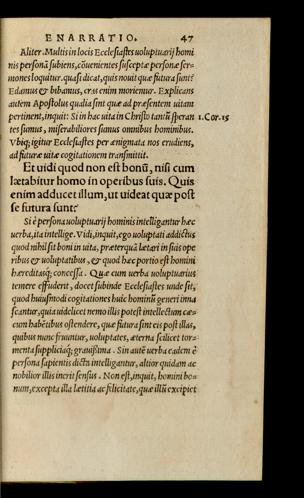 ENARRATIO. 47
Aliter. Multis in locis Ecclesiastes uoluptuarij homi
nis personā subiens, cōuenientes susceptæ personæ ser-
mones loquitur. quasi dicat, quis nouit quæ futura sunt?
Edamus & bibamus, cras enim moriemur. Explicans
autem Apostolus qualia sint quæ ad præsentem uitam
pertinent, inquit: Si in hac uita in Christo tantū speran 1.Cor.15
tes sumus, miserabiliores sumus omnibus hominibus.
Vbiq; igitur Ecclesiastes per ænigmata nos erudiens,
ad futuræ uitæ cogitationem transmittit.
Et uidi quod non est bonū, nisi cum
lætabitur homo in operibus suis. Quis
enim adducet illum, ut uideat quæ post
se futura sunt?
Si è persona uoluptuarij hominis intelligantur hæc
uerba, ita intellige. Vidi, inquit, ego uoluptati addictus
quod nihil sit boni in uita, præterquā lætari in suis ope
ribus & uoluptatibus, & quod hæc portio est homini
hæreditasq; concessa. Quæ cum uerba uoluptuarius
temere effuderit, docet subinde Ecclesiastes unde sit,
quod huiusmodi cogitationes huic hominū generi inna
scantur, quia uidelicet nemo illis potest intellectum cæ-
cum habētibus ostendere, quæ futura sint eis post illas,
quibus nunc fruuntur, uoluptates, æterna scilicet tor-
menta suppliciaq; grauissima. Sin autē uerba eadem è
persona sapientis dicta intelligantur, altior quidam ac
nobilior illis inerit sensus. Non est, inquit, homini bo-
num, excepta illa lætitia ac felicitate, quæ illū excipiet